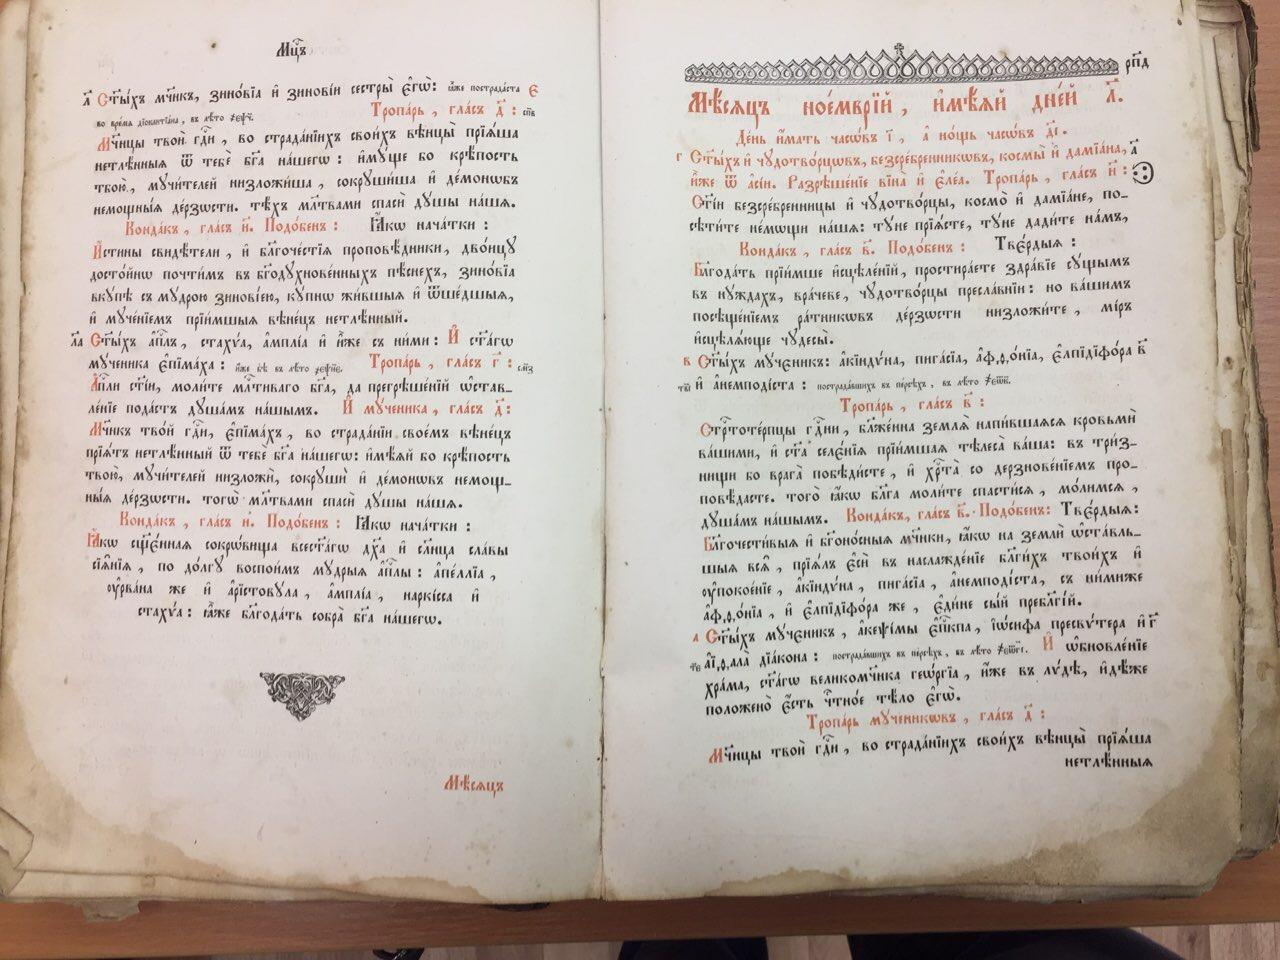 Мц҃ъ
л҃ Ст҃ы́хъ мч҃нкъ, зино́вїа и҆ зино́вїи сестры̀ є҆гѡ̀: ꙗ҆́же пострада́ста є
во време́на дїоклитїа́на, въ лѣ́то
Тропа́рь, гла́съ д҃:
Мч҃нцы твоѝ гд҃и, во страда́нїихъ свои́хъ вѣнцы̀ прїѧ́ша
нетлѣ́нныѧ ѿ тебє̀ бг҃а на́шегѡ: и҆му́ще бо крѣ́пость
твою̀, мучи́телей низложи́ша, сокруши́ша и҆ де́монѡвъ
немощны́ѧ де́рзости. тѣ́хъ мл҃твами спасѝ ду́шы на́шѧ.
Конда́къ, гла́съ и҃. Подо́бенъ: Ꙗ҆́кѡ нача́тки:
И҆́стины свидѣ́тели, и҆ бл҃гоче́стїѧ проповѣ́дники, дво́ицу
досто́йнѡ почти́мъ въ бг҃одухнове́нныхъ пѣ́снехъ, зино́вїа
вку́пѣ съ му́дрою зино́вїею, ку́пнѡ жи́вшыѧ и҆ ѿше́дшыѧ,
и҆ муче́нїемъ прїи́мшыѧ вѣне́цъ нетлѣ́нный.
ла Ст҃ы́хъ а҆пⷭ҇лъ, ста́хѵа, а҆мплі́а и҆ и҆̀же съ ни́ми: И҆ ст҃а́гѡ
мученика є҆піма́ха: и҆́же бѣ̀ въ лѣ́то Тропа́рь, гла́съ г҃:
А҆пⷭ҇ли ст҃і́и, моли́те мл҃тиваго бг҃а, да прегрѣше́нїй ѡ҆ста́в-
ле́нїе пода́стъ душа́мъ на́шымъ. И҆ му́ченика, гла́съ д҃:
Мч҃нкъ тво́й гд҃и, є҆піма́хъ, во страда́нїи свое́мъ вѣне́цъ
прїѧ́тъ нетлѣ́нный ѿ тебє̀ бг҃а на́шегѡ: и҆мѣ́ѧй бо крѣ́пость
твою̀, мучи́телей низложѝ, сокрушѝ и҆ де́монѡвъ немощ-
ны́ѧ де́рзости. тогѡ̀ мл҃твами спасѝ ду́шы на́шѧ.
Конда́къ, гла́съ и҃. Подо́бенъ: Ꙗ҆́кѡ нача́тки:
Ꙗ҆́кѡ сщ҃е́ннаѧ сокрѡ́вища всест҃а́гѡ дх҃а и҆ сл҃нца сла́вы
сїѧ̑нїѧ, по до́лгу воспои́мъ му́дрыѧ а҆пⷭ҇лы: а҆пе́ллїа,
ѹ҆рва́на же и҆ а҆рїстову́ла, а҆мплі́а, нарки́сса и҆
ста́хѵа: ꙗ҆̀же бл҃года́ть собра̀ бг҃а на́шегѡ.
Мѣ́сѧцъ
рп҃д
Мѣ́сѧцъ ное́мврїй, и҆мѣ́ѧй дне́й л҃.
Де́нь и҆́мать часѡ́въ і҃, а҆ но́щь часѡ́въ д҃і.
г Ст҃ы́хъ и҆ чудотво́рцѡвъ, безсре́бренникѡвъ, космы̀ и҆ дамїа́на, а҃
и҆́же ѿ а҆сі́и. Разрѣше́нїе вїна̀ и҆ є҆ле́а. Тропа́рь, гла́съ и҃:
Ст҃і́и безсре́бренницы и҆ чудотво́рцы, космо̀ и҆ дамїа́не, по-
сѣти́те не́мѡщи на́шѧ: ту́не прїѧ́сте, ту́не дади́те на́мъ,
Конда́къ, гла́съ в҃. Подо́бенъ: Тве́рдыѧ:
Бл҃года́ть прїи́мше и҆сцѣле́нїй, простира́ете здра́вїе су́щымъ
въ ну́ждахъ, вра́чеве, чудотво́рцы пресла́внїи: но ва́шимъ
посѣще́нїемъ ра́тникѡвъ де́рзости низложи́те, мі́ръ
и҆сцѣлѧ́юще чудесы̀.
в Ст҃ы́хъ му́ченикъ: а҆кїнду́на, пига́сїа, а҆фѳо́нїа, є҆лпїдїфо́ра в҃
и҆ а҆немподі́ста: пострада́вшихъ въ персѣ́хъ, въ лѣ́то
Тропа́рь, гла́съ в҃:
Стрⷭ҇тоте́рпцы гдⷭ҇ни, бл҃же́нна землѧ̀ напи́вшаѧсѧ кровьмѝ
ва́шими, и҆ ст҃а̀ селе́нїѧ прїи́мшаѧ тѣлеса̀ ва́ша: въ три́з-
нищи бо врага̀ побѣди́сте, и҆ хрⷭ҇та̀ со дерзнове́нїемъ про-
повѣ́дасте. того̀ ꙗ҆́кѡ бл҃га моли́те спасти́сѧ, мо́лимсѧ,
душа́мъ на́шымъ. Конда́къ, гла́съ в҃. Подо́бенъ: Тве́рдыѧ:
Бл҃гочести́выѧ и҆ бг҃оно́сныѧ мч҃ники, ꙗ҆́кѡ на землѝ ѡ҆ста́вль-
шыѧ всѧ̑, прїѧ́лъ є҆сѝ въ наслажде́нїе бл҃ги́хъ твои́хъ и҆
ѹ҆покое́нїе, а҆кїнду́на, пига́сїа, а҆немподі́ста, съ ни́миже
а҆фѳо́нїа, и҆ є҆лпїдїфо́ра же, є҆ди́не сы́й пребл҃гі́й.
а Ст҃ы́хъ му́ченикъ, а҆кеѱі́мы є҆пⷭ҇кпа, і҆ѡ́сифа пресвѵ́тера и҆ г҃
а҆їѳа́ла дїа́кона: пострада́вшихъ въ персѣ́хъ, въ лѣ́то И҆ ѡ҆бновле́нїе
хра́ма, ст҃а́гѡ великомч҃ника геѡ́ргїа, и҆́же въ лѵ́дѣ, и҆дѣ́же
положено̀ є҆́сть чⷭ҇тно́е тѣ́ло є҆гѡ̀.
Тропа́рь му́ченикѡвъ, гла́съ д҃:
Мч҃нцы твоѝ гд҃и, во страда́нїихъ свои́хъ вѣнцы̀ прїѧ́ша
нетлѣ́нныѧ